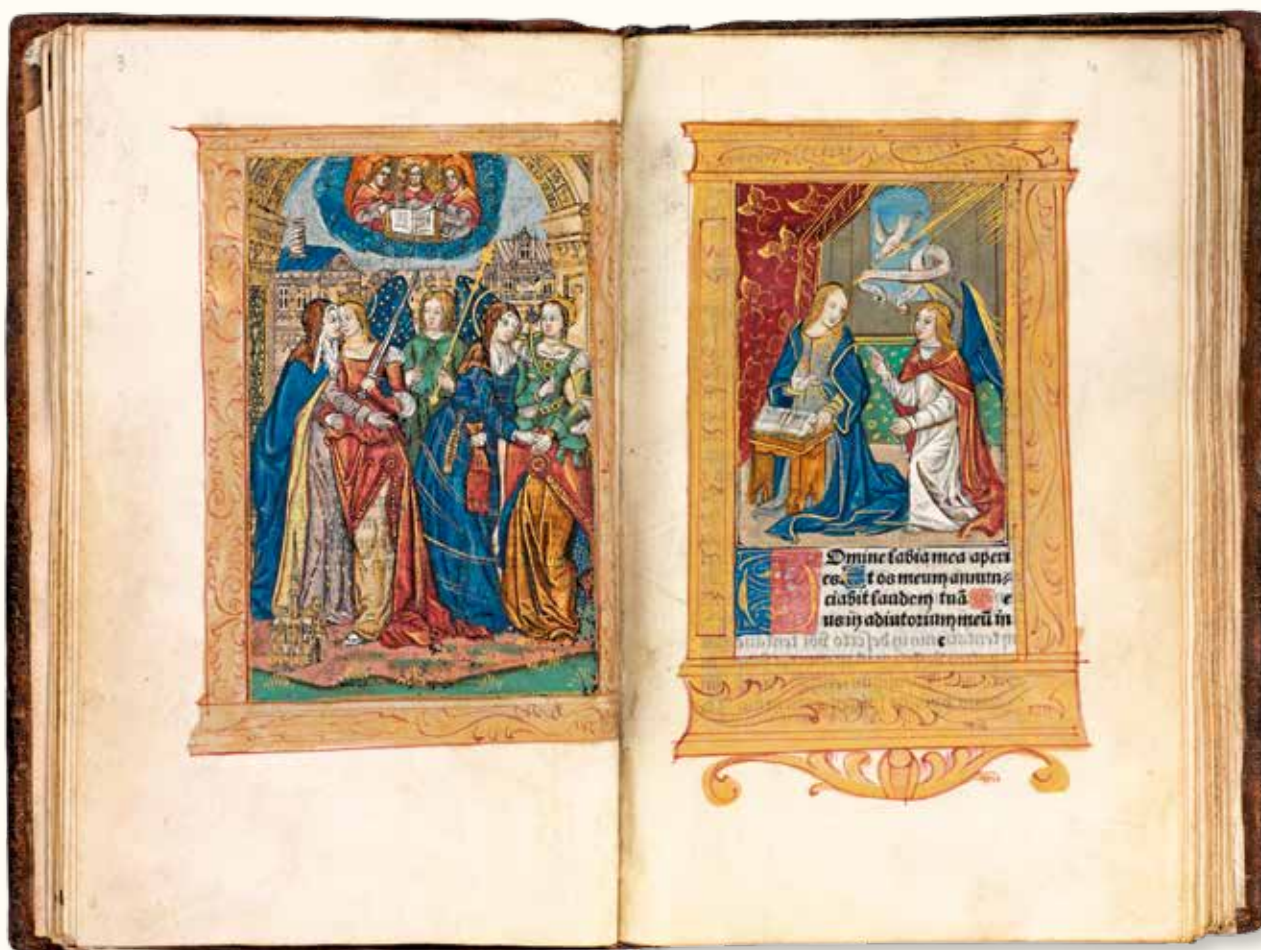 Omine labia mea aperi
es Et os meum annun⸗
ciabit laudem tuā e
us in adiutorium meū in